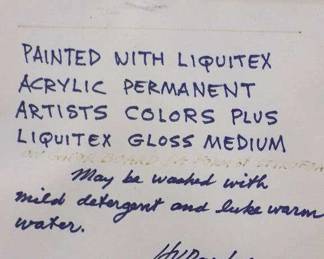 PAINTED WITH LIQUITEX
ACRYLIC PERMANENT
ARTISTS COLORS PLUS
LIQUITEX GLOSS MEDIUM
May be washed with
mild detergent and luke warm
water.